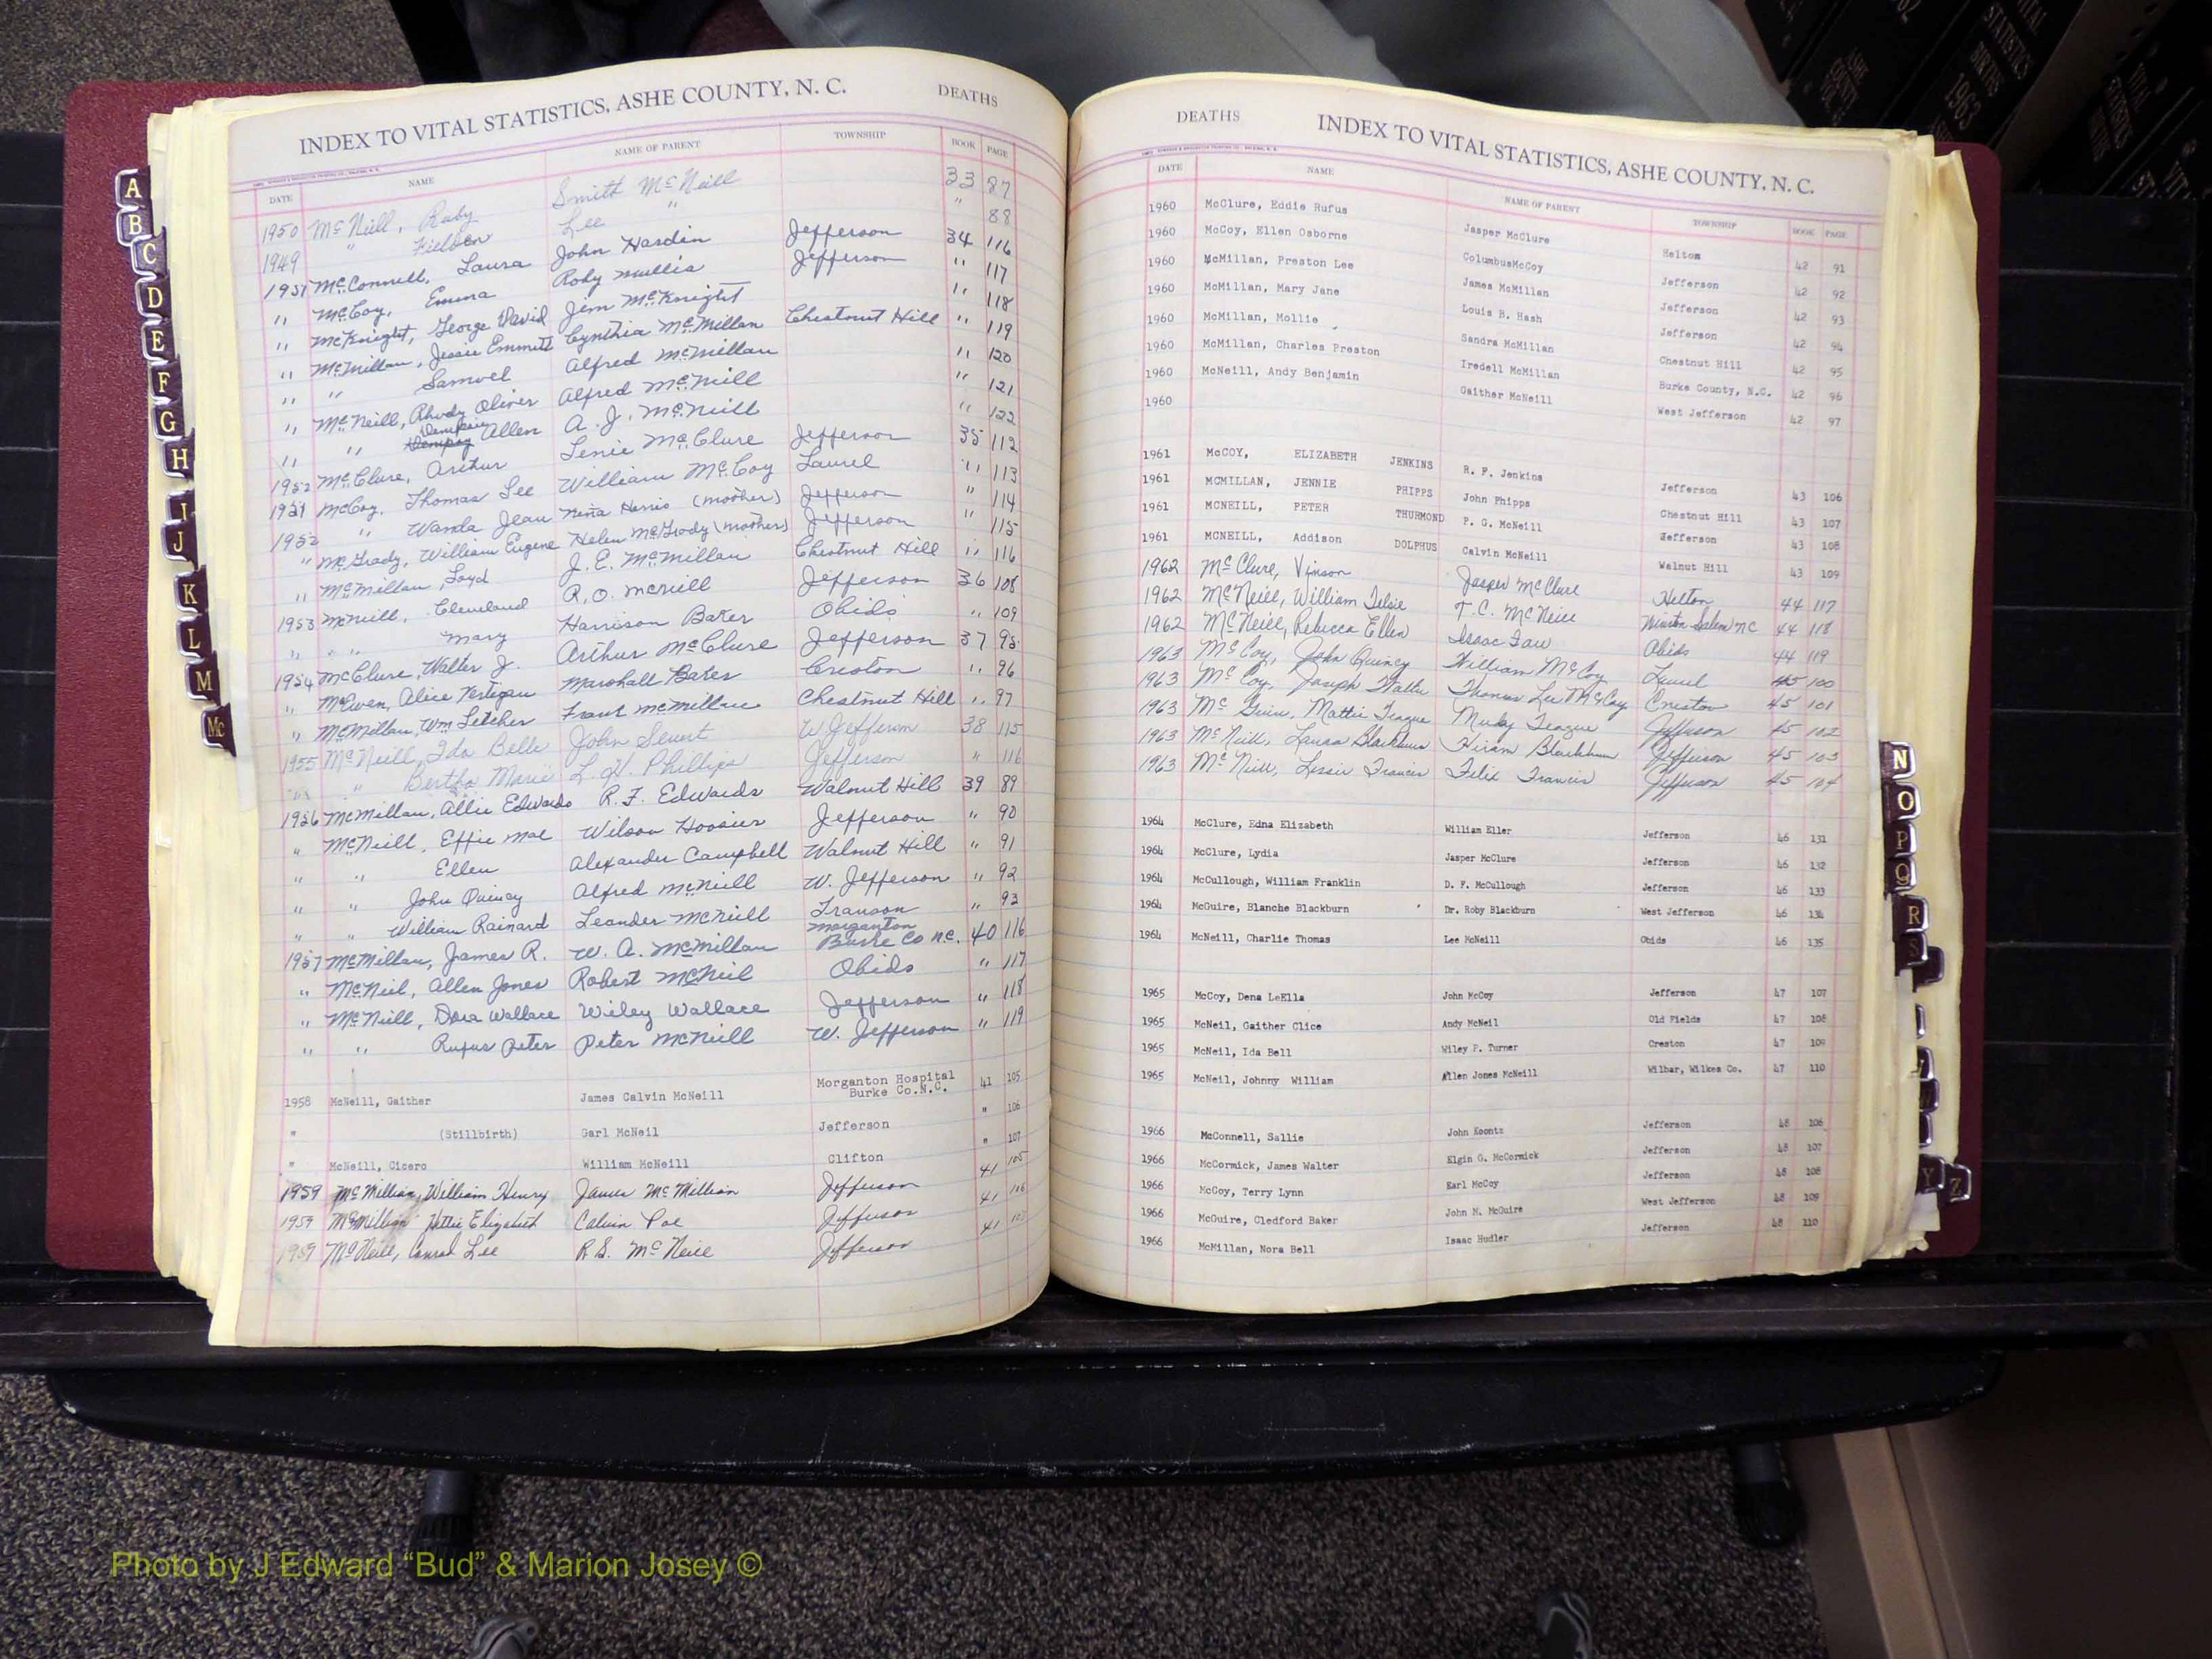 INDEX TO VITAL STATISTICS, ASHE COUNTY, N. C. DEATHS
DATE NAME NAME OF PARENT TOWNSHIP BOOK PAGE
1950 McNeill, Roby Smith McNeill 33 87
1949 " Fielden Lee " " 88
1951 McConnell, Laura John Hardin Jefferson 34 116
" McCoy, Emma Roby Mullis Jefferson " 117
" McKnight, George David Jim McKnight " 118
" McMillan, Jessie Emmett Cynthia McMillan Chestnut Hill " 119
" " Samuel Alfred McMillan " 120
" McNeill, Rhudy Oliver Alfred McNeill " 121
" " Allen A. J. McNeill " 122
1952 McClure, Arthur Lenie McClure Jefferson 35 112
1951 McCoy, Thomas Lee William McCoy Laurel " 113
1952 " Wanda Jean Nina Harris (mother) Jefferson " 114
" McGrady, William Eugene Helen McGrady (mother) Jefferson " 115
" McMillan, Loyd J. E. McMillan Chestnut Hill " 116
1953 McNeill, Cleveland R. O. McNeill Jefferson 36 108
" " Mary Harrison Bater Obids " 109
1954 McClure, Walter J. Arthur McClure Jefferson 37 95
" McEwen, Alice Marshall Bater Creston " 96
" McMillan, Wm Letcher Frank McMillan Chestnut Hill " 97
1955 McNeill, Ida Belle John W Jefferson 38 115
" " Bertha Marie L. H. Phillips Jefferson " 116
1956 McMillan, Allie Edwards R. F. Edwards Walnut Hill 39 89
" McNeill, Effie Mae Wilson Hoosier Jefferson " 90
" " Ellen Alexander Campbell Walnut Hill " 91
" " John Quincy Alfred McNeill W. Jefferson " 92
" " William Rainard Leander McNeill Transon " 93
Morganton
1957 McMillan, James R. W. A. McMillan Burke Co N.C. 40 116
" McNeil, Allen Jones Robert McNeil Obids " 117
" McNeill, Dora Wallace Wiley Wallace Jefferson " 118
" " Rufus Peter Peter McNeill W. Jefferson " 119
1958 McNeill, Gaither James Calvin McNeill Morganton Hospital 41 105
Burke Co.N.C.
" (Stillbirth) Garl McNeil Jefferson " 106
" McNeill, Cicero William McNeill Clifton " 107
1959 McMillian, William Henry James McMillian Jefferson 41 105
1959 McMillian Hettie Elizabeth Calvin Poe Jefferson 41 106
1959 McNeill, Conrad Lee R. S. McNeill Jefferson 41 107
DEATHS INDEX TO VITAL STATISTICS, ASHE COUNTY, N. C.
DATE NAME NAME OF PARENT TOWNSHIP BOOK PAGE
1960 McClure, Eddie Rufus Jasper McClure Helton 42 91
1960 McCoy, Ellen Osborne ColumbusMcCoy Jefferson 42 92
1960 McMillan, Preston Lee James McMillan Jefferson 42 93
1960 McMillan, Mary Jane Louis B. Hash Jefferson 42 94
1960 McMillan, Mollie Sandra McMillan Chestnut Hill 42 95
1960 McMillan, Charles Preston Iredell McMillan Burke County, N.C. 42 96
1960 McNeill, Andy Benjamin Gaither McNeill West Jefferson 42 97
1960
1961 McCOY, ELIZABETH JENKINS R. F. Jenkins Jefferson 43 106
1961 MCMILLAN, JENNIE PHIPPS John Phipps Chestnut Hill 43 107
1961 MCNEILL, PETER THURMOND P. G. McNeill Jefferson 43 108
1961 MCNEILL, Addison DOLPHUS Calvin McNeill Walnut Hill 43 109
1962 McClure, Vinson Jasper McClure Helton 44 117
1962 McNeill, William T. C. McNeill Winston Salem NC 44 118
1962 McNeill, Rebecca Ellen Isaac Faw Obids 44 119
1963 McCoy, John Quincy William McCoy Laurel 45 100
1963 McCoy, Joseph Walter Thomas Lee McCoy Creston 45 101
1963 McGuire, Mattie Teague Teague Jefferson 45 102
1963 McNeill, Laura Blackburn Hiram Blackburn Jefferson 45 103
1963 McNeill, Lessie Francis Felix Francis Jefferson 45 104
1964 McClure, Edna Elizabeth William Eller Jefferson 46 131
1964 McClure, Lydia Jasper McClure Jefferson 46 132
1964 McCullough, William Franklin D. F. McCullough Jefferson 46 133
1964 McGuire, Blanche Blackburn Dr. Roby Blackburn West Jefferson 46 134
1964 McNeill, Charlie Thomas Lee McNeill Obids 46 135
1965 McCoy, Dena LeElla John McCoy Jefferson 47 107
1965 McNeil, Gaither Clice Andy McNeil Old Fields 47 108
1965 McNeil, Ida Bell Wiley P. Turner Creston 47 109
1965 McNeil, Johnny William Allen Jones McNeill Wilbar, Wilkes Co. 47 110
1966 McConnell, Sallie John Koontz Jefferson 48 106
1966 McCormick, James Walter Elgin G. McCormick Jefferson 48 107
1966 McCoy, Terry Lynn Earl McCoy Jefferson 48 108
1966 McGuire, Cledford Baker John M. McGuire West Jefferson 48 109
1966 McMillan, Nora Bell Isaac Hudler Jefferson 48 110
A
B
C
D
E
F
G
H
I
J
K
L
M
Mc
N
O
P
Q
R
S
Y
Z
VITAL STATISTICS BIRTHS 1963
ASHE COUNTY
Photo by J Edward “Bud” & Marion Josey ©